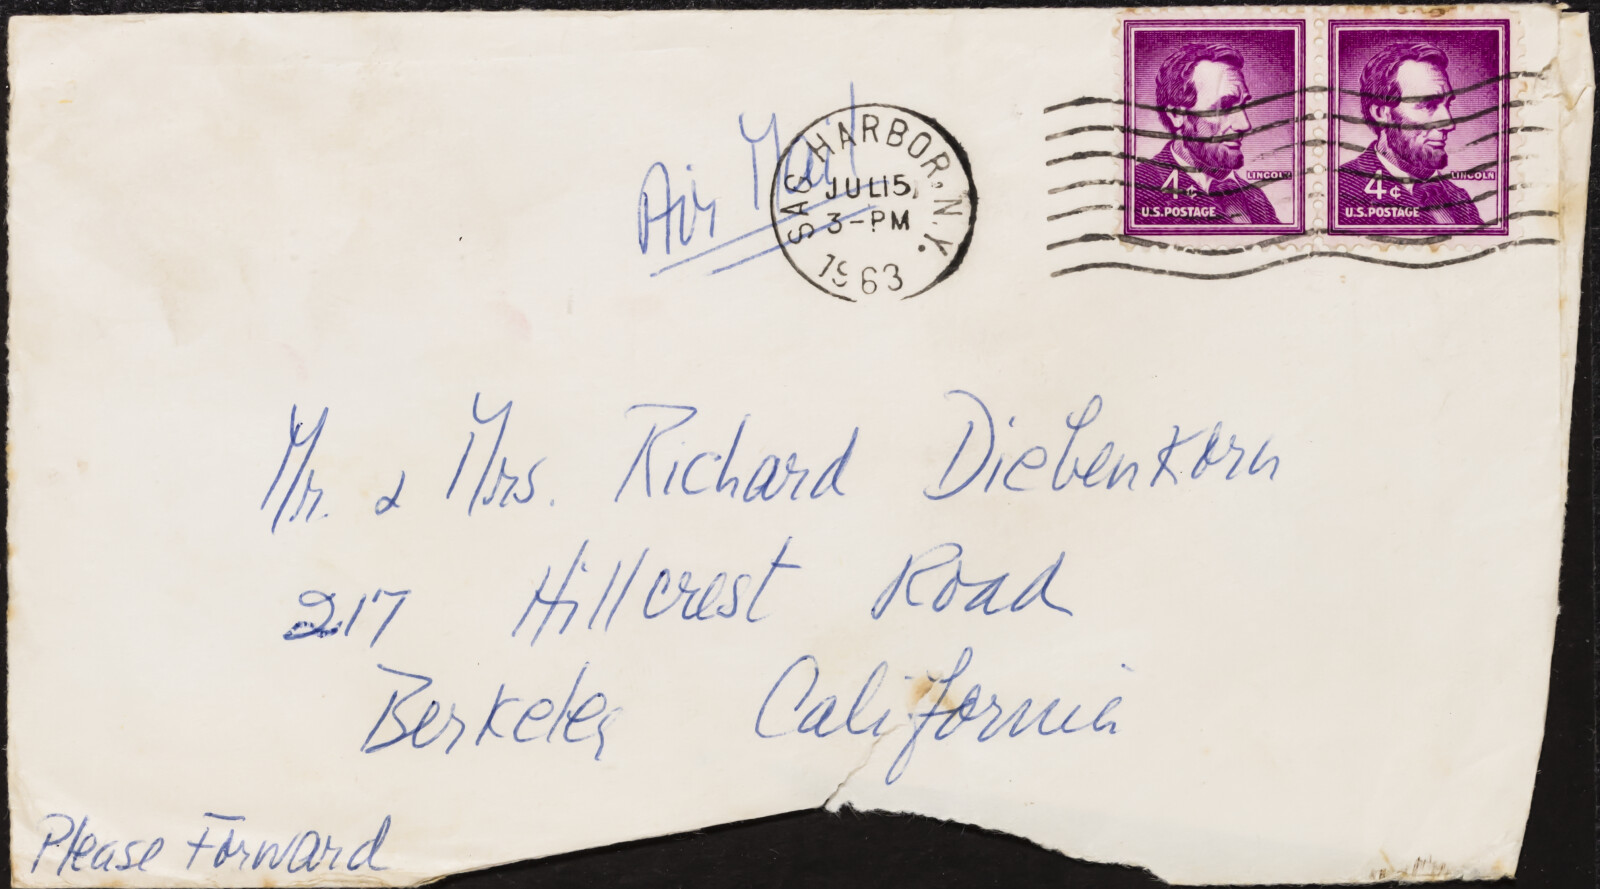 Air Mail
SAG HARBOR, N.Y.
JUL 15
3-PM
1963
4¢ LINCOLN
U.S. POSTAGE
4¢ LINCOLN
U.S. POSTAGE
Mr. & Mrs. Richard Diebenkorn
217 Hillcrest Road
Berkeley California
Please Forward